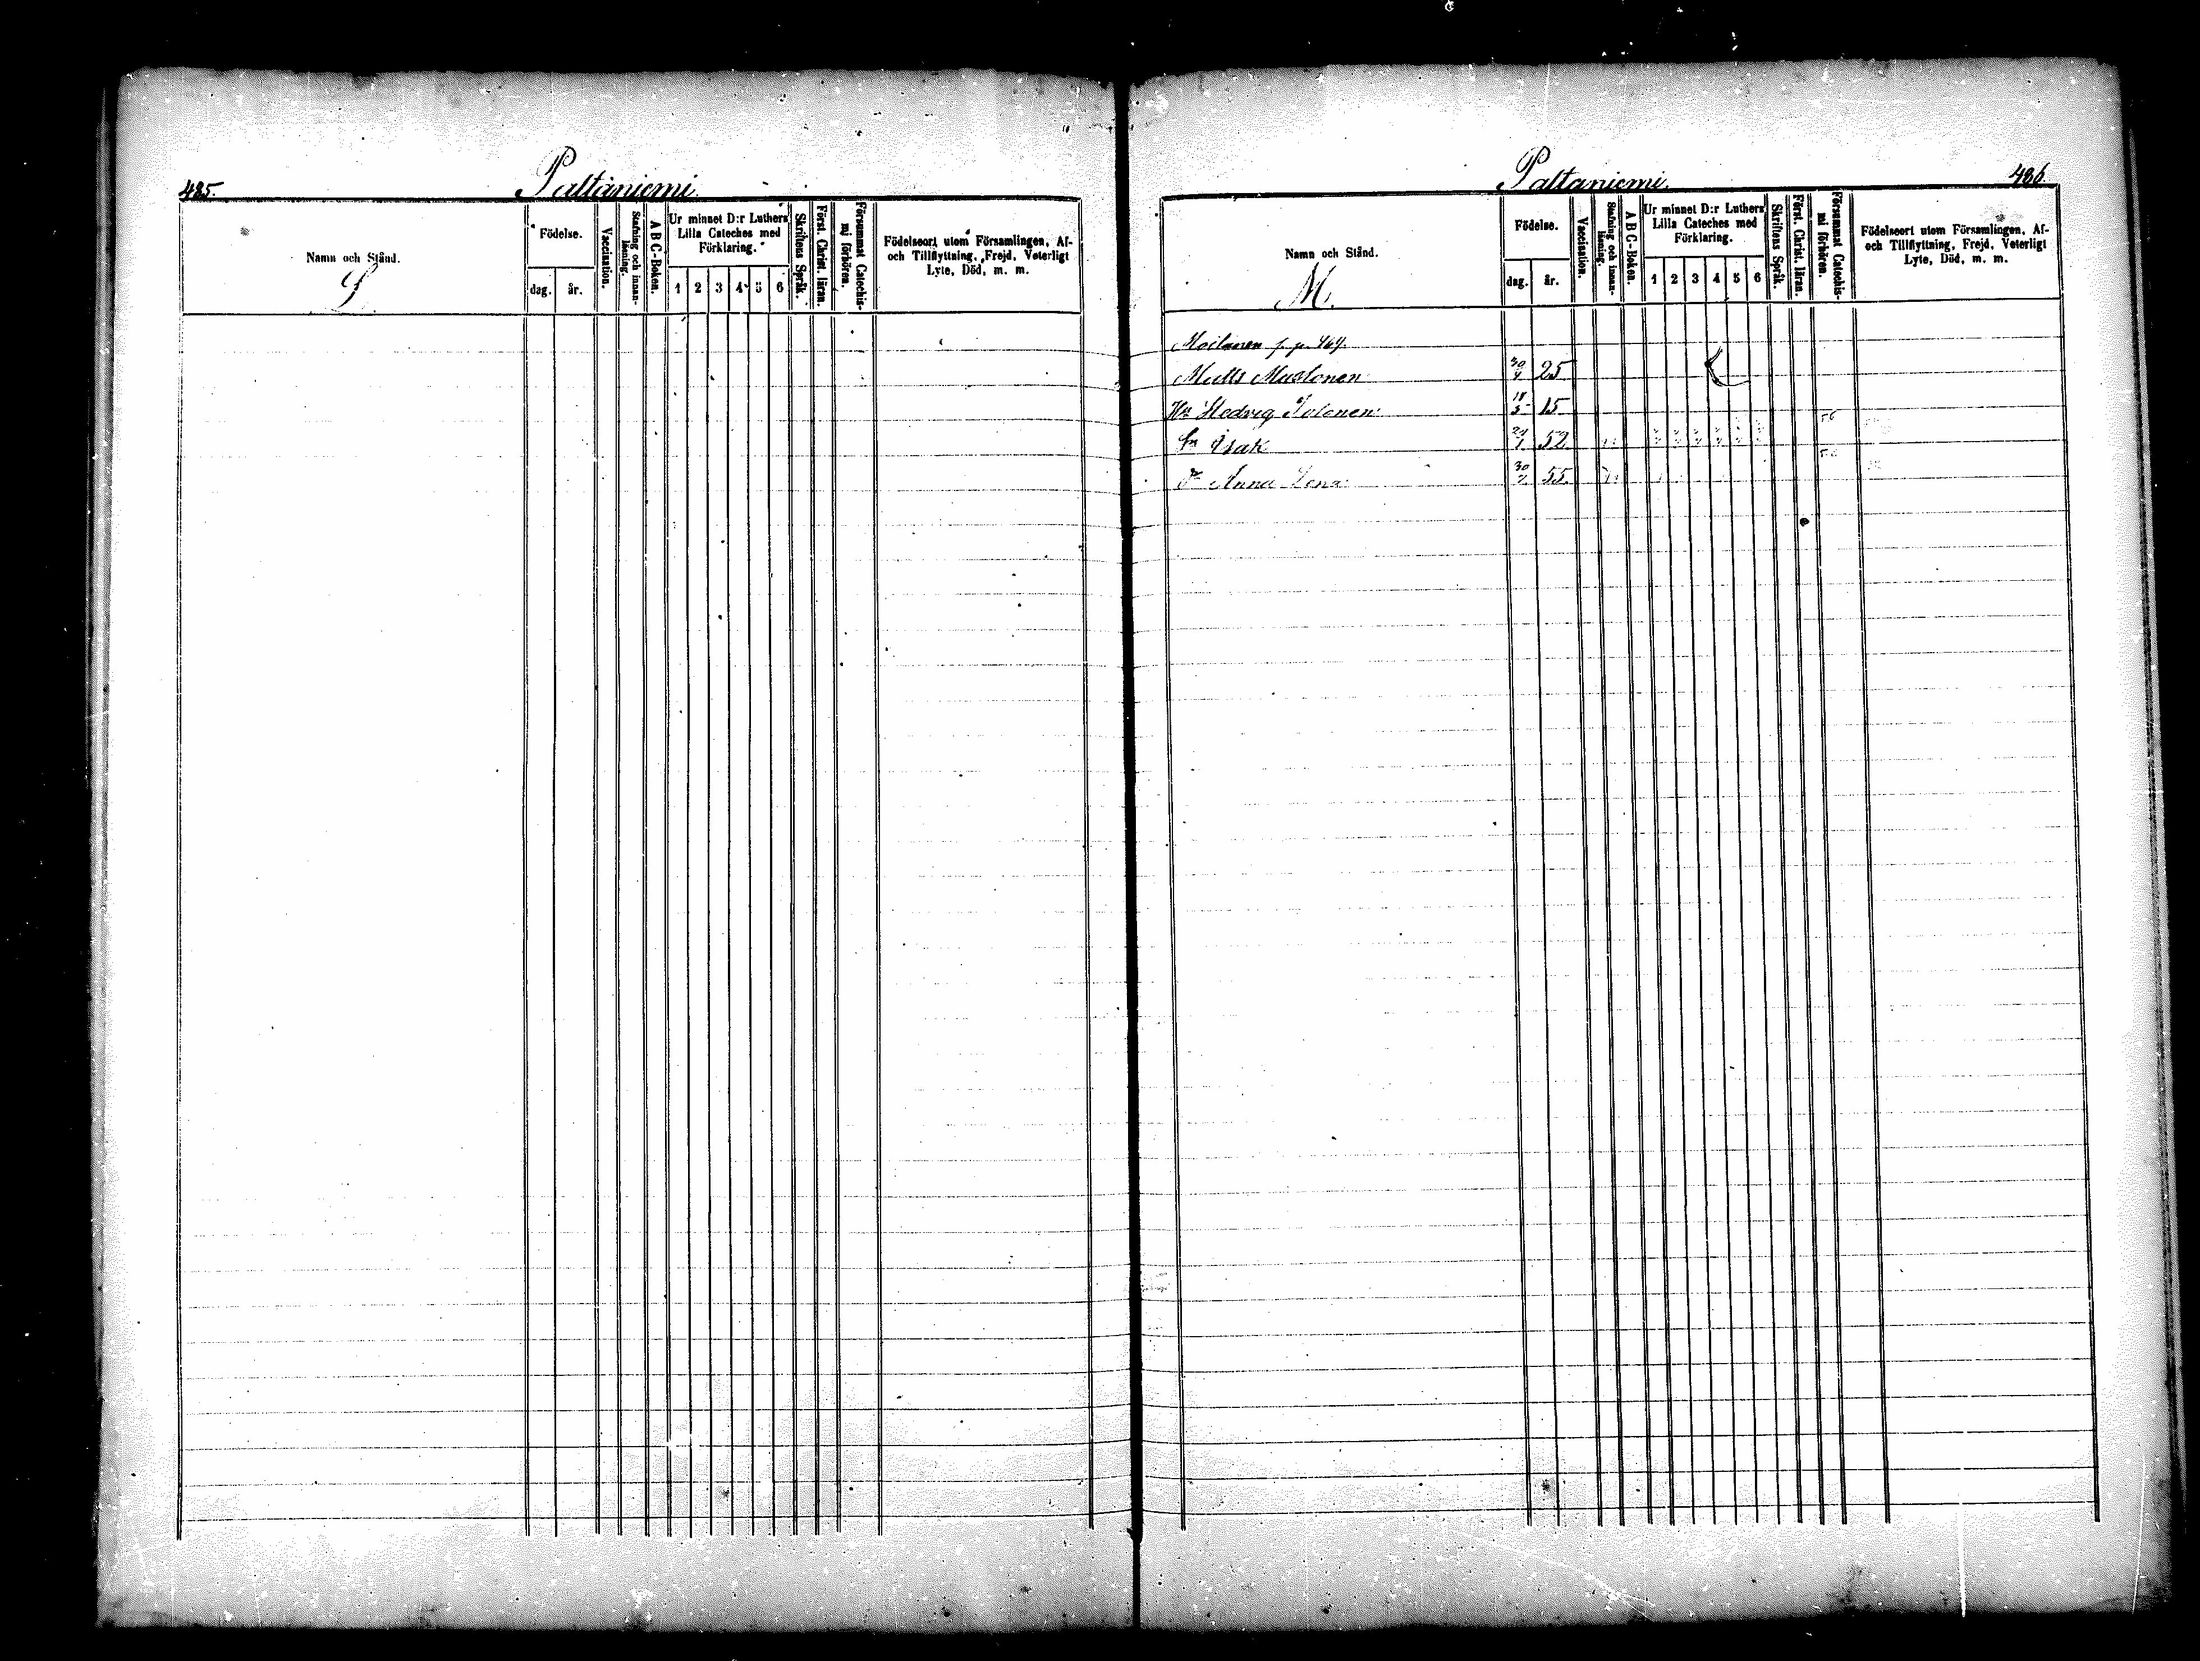 485.
Paltaniemi.
Namn och Stånd.
L.
Födelse.
dag.
år.
Vaccination.
Stafning och innan-läsning.
A B C-Boken.
Ur minnet D:r Luthers
Lilla Cateches med
Förklaring.
1 2 3 4 5 6
Skriftens Språk.
Först. Christ. läran.
Försummat Catechis-
mi förhören.
Födelseort utom Församlingen, Af-
och Tillflyttning, Frejd, Veterligt
Lyte, Död, m. m.
Paltaniemi.
486.
Namn och Stånd.
M.
Födelse.
dag.
år.
Vaccination.
Stafning och innan-läsning.
A B C-Boken.
Ur minnet D:r Luthers
Lilla Cateches med
Förklaring.
1 2 3 4 5 6
Skriftens Språk.
Först. Christ. läran.
Försummat Catechis-
mi förhören.
Födelseort utom Församlingen, Af-
och Tillflyttning, Frejd, Veterligt
Lyte, Död, m. m.
Moilanen
Matts Mustonen 25
Hu Hedvig Tolonen 18/5 15
Sn Isak 52
Dr Anna Lena 55.